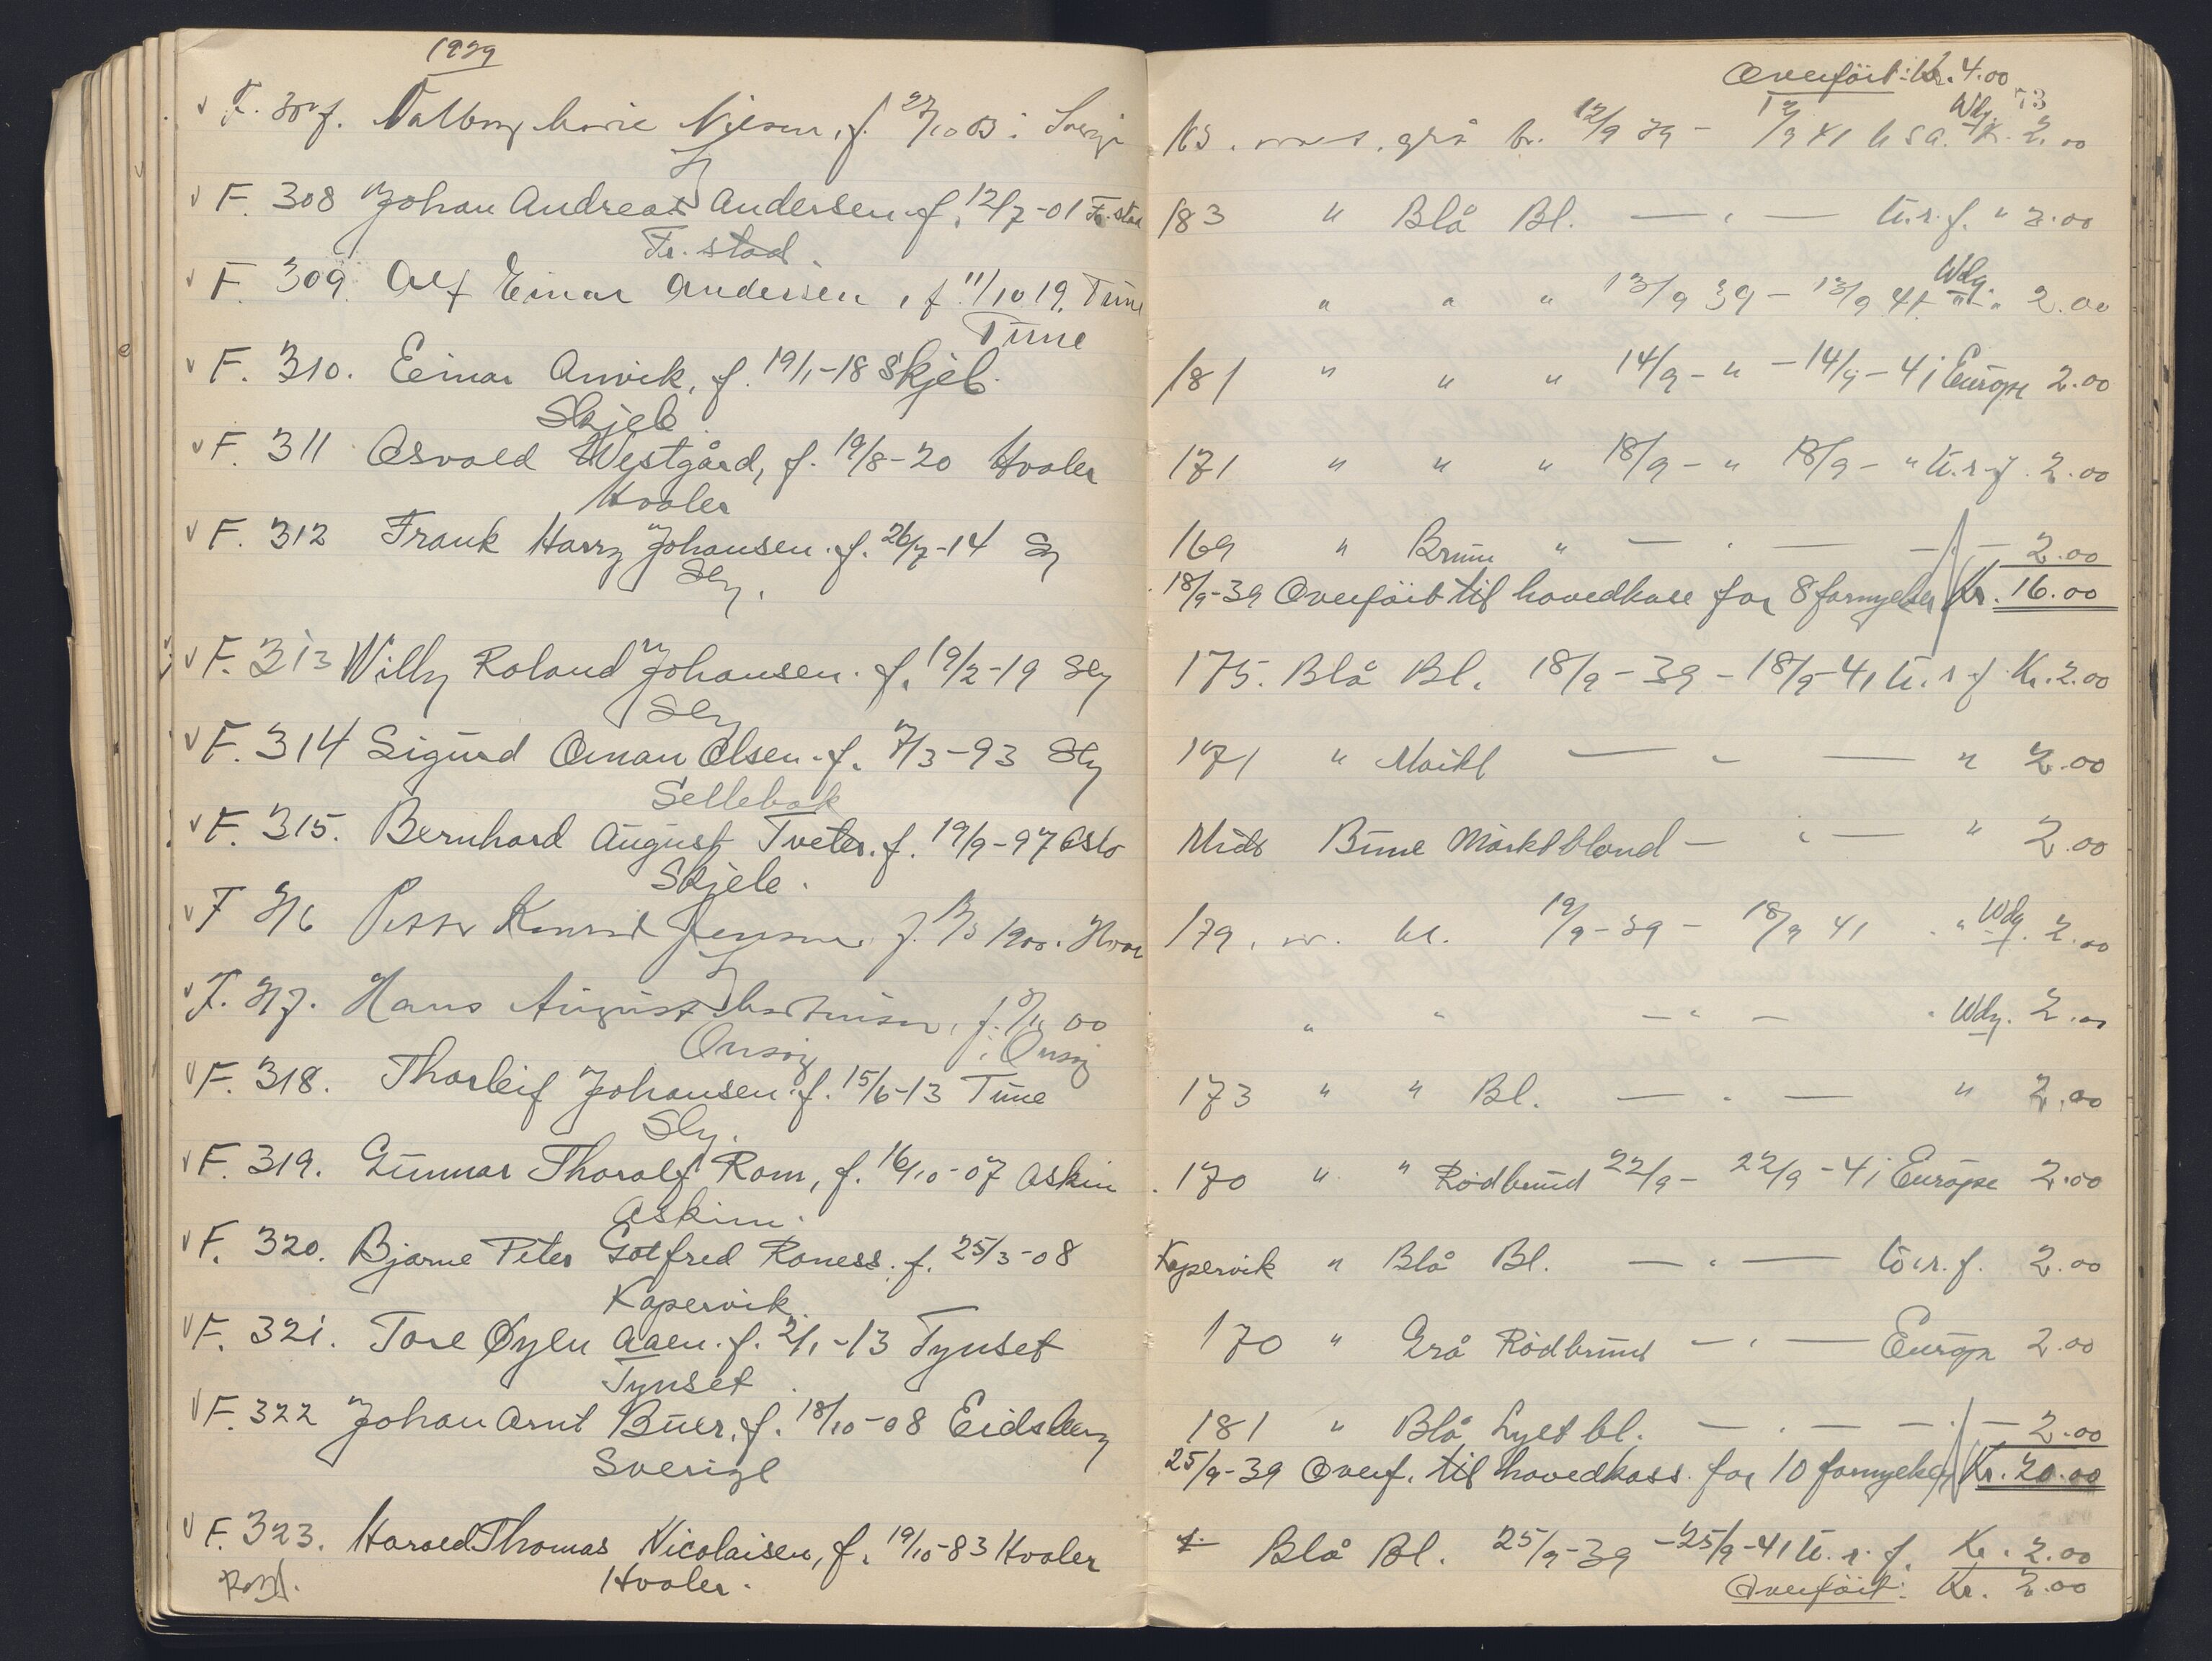 1939
F. 307. Marie Nilsen, f. 27/10 03 i Sverige
F. 308 Johan Andreas Andersen. f. 12/7-01 Fr.stad
Fr. stad.
F. 309. Alf Einar Andersen, f. 11/10 19. Tune
Tune
F. 310. Einar Anvik, f. 19/1-18 Skjeb.
Skjeb.
F. 311 Asvald Westgård, f. 19/8-20 Hvaler
Hvaler
F. 312 Frank Harry Johansen. f. 26/7-14 Sg
Slg.
F. 313 Willy Roland Johansen. f. 19/2-19 Slg
Slg
F. 314 Sigurd Olsen. f. 7/3-93 Slg
Sellebak
F. 315. Bernhard August Tveter. f. 19/9-97 Oslo
Skjeb.
F 316 Petter Konrad Jensen f. 1900. Hvaler
F. 317. Hans August Martinsen, f. 00
Onsøy i Onsøy
F. 318. Thorleif Johansen. f. 15/6-13 Tune
Slg.
F. 319. Gunnar Thoralf Rom, f. 16/10-07 Askim
Askim.
F. 320. Bjarne Peter Gotfred Roness. f. 25/3-08
Kopervik.
F. 321. Tore Øylu Aaen. f. 2/1-13 Tynset
Tynset.
F. 322 Johan Arnt Buer, f. 18/10-08 Eidsberg
Sverige
F. 323. Harald Thomas Nicolaisen, f. 19/10-83 Hvaler
Hvaler.
Overföit: Kr. 4.00
73
grå br. 12/9 39 - 12/9 41 Wdg. Kr. 2.00
183 " Blå Bl. — " — U.r.f. " 2.00
" " " 13/9 39 - 13/9 41 Wdg. " 2.00
181 " " " 14/9 - " - 14/9 - 41 Europa 2.00
171 " " " 18/9 - " 18/9 - " U.r.f. 2.00
169 " Brun " — " — 2.00
18/9-39 Overföit til hovedkase for 8 fornyelser Kr. 16.00
175. Blå Bl. 18/9-39 - 18/9-41 U.r.f Kr. 2.00
171 " Mörkbl — " — " 2.00
Mids Brune Mörktblond — " — " 2.00
179. bl. 19/9-39 - 18/9 41 " Wdg. 2.00
" " — " — " Wdg. 2.00
173 " " Bl. — " — " 2.00
170 " " Rödbrund 22/9 - 22/9 - 41 Europa 2.00
Kopervik " Blå Bl. — " — U.r.f. 2.00
170 " Grå Rödbrund — " — Europa 2.00
181 " Blå Lyst bl. — " — 2.00
25/9-39 Overf. til hovedkass. for 10 fornyelser Kr. 20.00
Blå Bl. 25/9-39 - 25/9-41 U.r.f. Kr. 2.00
Overföit: Kr. 2.00